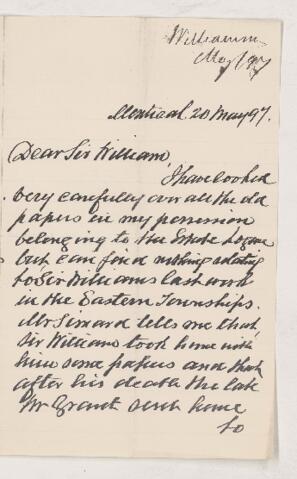 Williamm
May/97
Montreal 20 May 97.
Dear Sir William,
I have looked
very carefully over all the old
papers in my possession
belonging to the Estate Logan
but can find nothing relating
to Sir Williams last work
in the Eastern Townships.
Mr Simard tells me that
Sir William took home with
him some papers and that
after his death the late
Mr Grant sent home
to